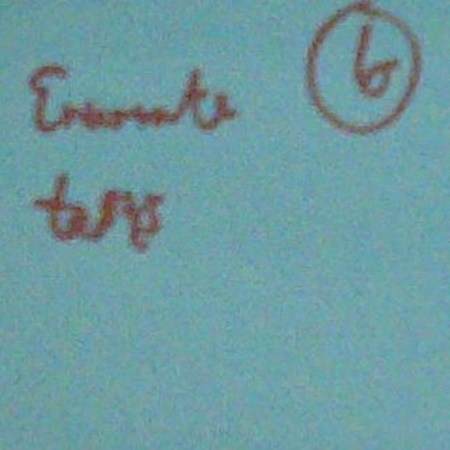 Execute 6
tests